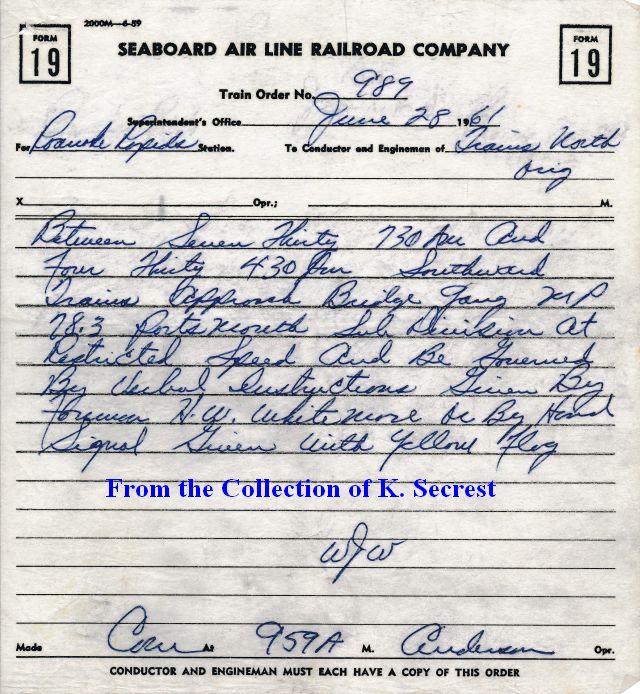 2000M—6-59
FORM 19
SEABOARD AIR LINE RAILROAD COMPANY
FORM 19
Train Order No. 989
Superintendent's Office June 28 1961
For Roanoke Rapids Station. To Conductor and Engineman of Trains North
Orig
X Opr.; M.
Between Seven Thirty 730 Am And
Four Thirty 430 Pm Southward
Trains Approach Bridge Gang MP
78.3 Portsmouth Sub Division At
Restricted Speed And Be Governed
By Verbal Instructions Given By
Foreman H.W. Whitemore Or By Hand
Signal Given With Yellow Flag
From the Collection of K. Secrest
WJW
Made Com At 959A M. Anderson Opr.
CONDUCTOR AND ENGINEMAN MUST EACH HAVE A COPY OF THIS ORDER